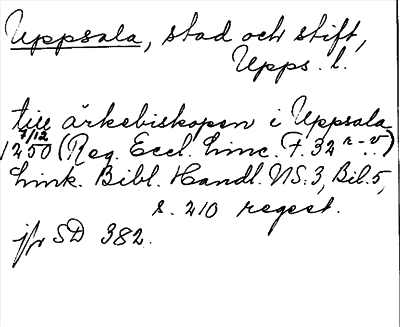 Uppsala, stad och stift,
Upps. l.
till ärkebiskopen i Uppsala
7/12
1250 (Reg. Eccl. Linc. F. 32 r-v)
Link. Bibl. Handl. NS. 3, Bil. 5,
s. 210 regest.
jfr SD 382.